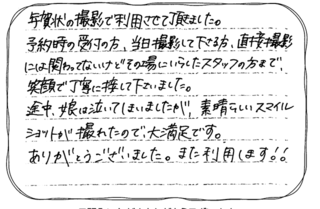 年賀状の撮影で利用させて頂きました。
予約時の受付の方、当日撮影して下さる方、直接撮影
には関わってないけどその場にいらしたスタッフの方まで、
笑顔で丁寧に接して下さいました。
途中、娘は泣いてしまいましたが、素晴らしいスマイル
ショットが撮れたので、大満足です。
ありがとうございました。また利用します!!